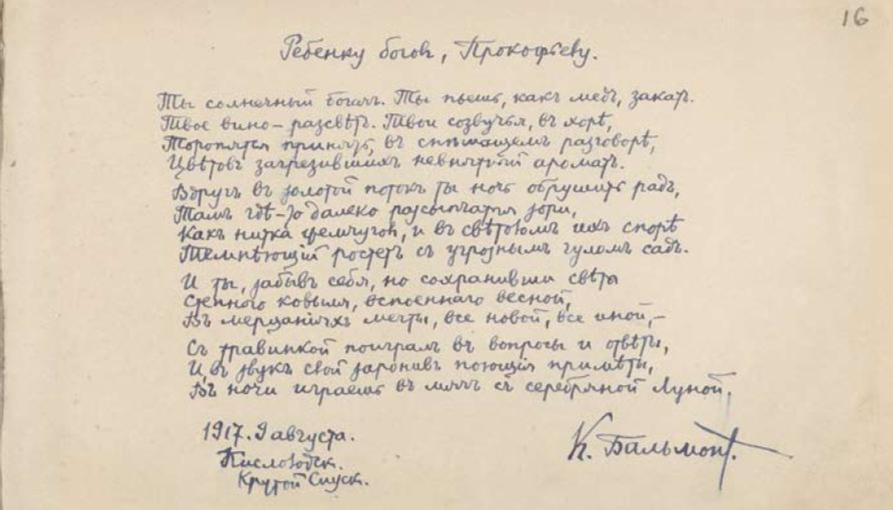 16
Ребенку боговъ, Прокофьеву.
Ты солнечный богачъ. Ты пьешь, какъ медъ, закатъ.
Твое вино – разсвѣтъ. Твои созвучья, въ хорѣ,
Торопятся принять, въ спѣшащемъ разговорѣ,
Цвѣтовъ загрезившихъ невнятный ароматъ.
Вдругъ въ золотой потокъ ты ночь обрушить радъ,
Тамъ гдѣ-то далеко разсыпчатыя зори,
Какъ нитка жемчуговъ, и въ свѣтломъ ихъ спорѣ
Темнѣющій ростетъ съ угрознымъ гуломъ садъ.
И ты, забывъ себя, но сохранивши свѣты
Степного ковыля, вспоеннаго весной,
Въ мерцаніяхъ мечты, все новой, все иной, –
Съ травинкой поигралъ въ вопросы и отвѣты,
И, въ звукъ свой заронивъ поющія примѣты,
Въ ночи играешь въ мячъ съ серебряной Луной.
1917. 9 августа.
Кисловодск.
Крутой Спуск.
К. Бальмонт.